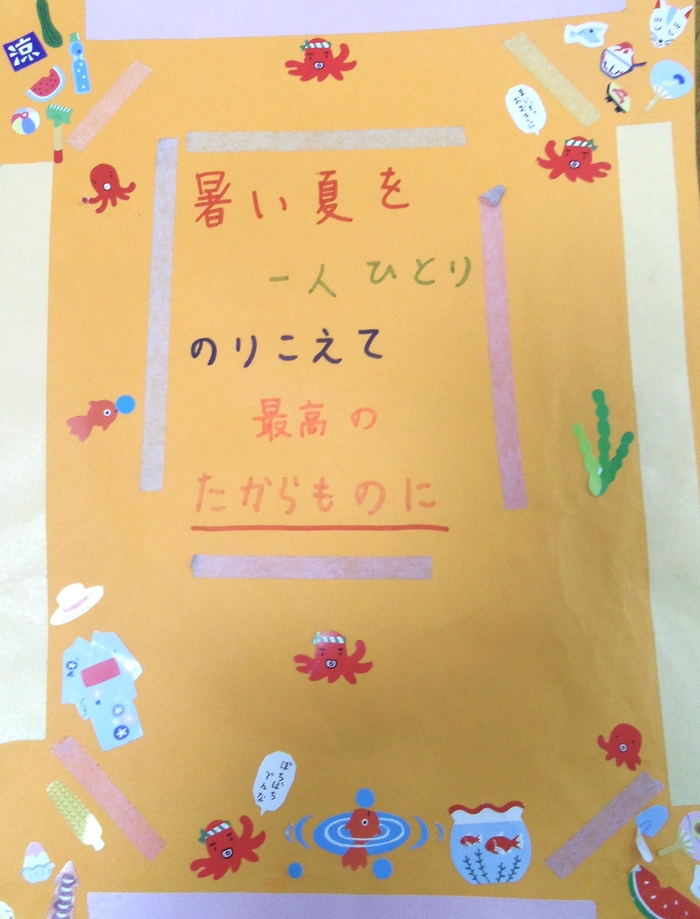 涼
まいど
おおきに
暑い夏を
一人ひとり
のりこえて
最高の
たからものに
ぼちぼち
でんな